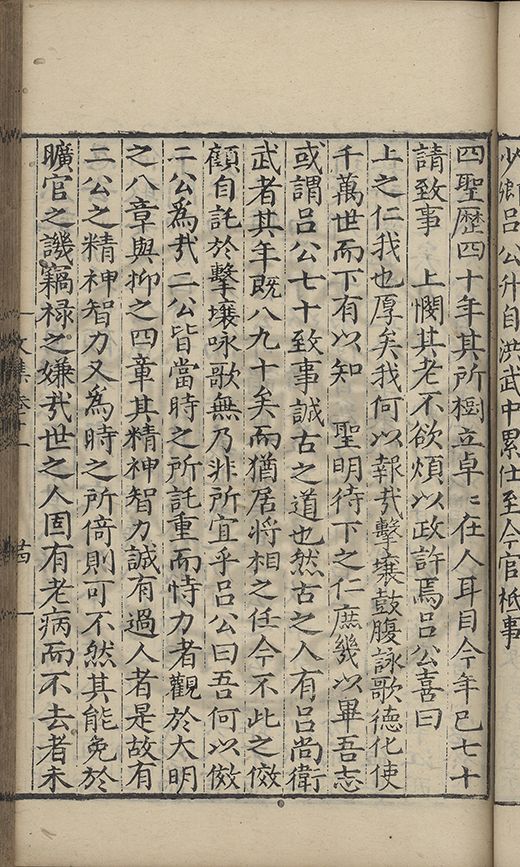 少卿吕公升自洪武中累仕至今官祇事
四聖歷四十年其所樹立卓〻在人耳目今年已七十
請致事　上憫其老不欲煩以政許焉吕公喜曰
上之仁我也厚矣我何以報㢤擊壤鼓腹詠歌德化使
千萬世而下有以知　聖明待下之仁庶幾以畢吾志
或謂吕公七十致事誠古之道也然古之人有吕尚衛
武者其年既八九十矣而猶居將相之任今不此之傚
顧自託於擊壤咏歌無乃非所宜乎吕公曰吾何以傚
二公爲㢤二公皆當時之所託重而恃力者觀於大明
之八章與抑之四章其精神智力誠有過人者是故有
二公之精神智力又爲時之所倚則可不然其能免於
曠官之譏竊禄之嫌㢤世之人固有老病而不去者未
文集卷十一